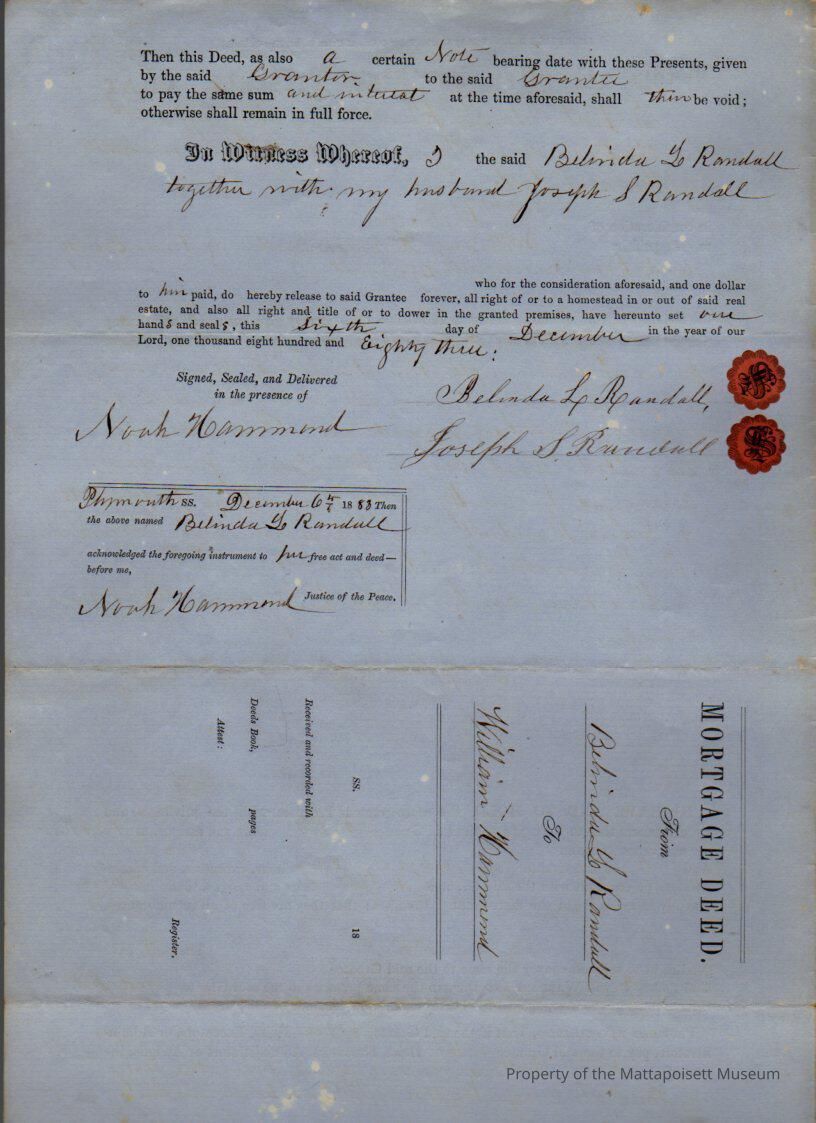 Then this Deed, as also a certain Note bearing date with these Presents, given
by the said Grantor to the said Grantee
to pay the same sum and interest at the time aforesaid, shall then be void;
otherwise shall remain in full force.
In Witness Whereof, I the said Belinda L Randall
together with my husband Joseph S Randall
who for the consideration aforesaid, and one dollar
to him paid, do hereby release to said Grantee forever, all right of or to a homestead in or out of said real
estate, and also all right and title of or to dower in the granted premises, have hereunto set our
hands and seals, this Sixth day of December in the year of our
Lord, one thousand eight hundred and Eighty three.
Signed, Sealed, and Delivered
in the presence of
Noah Hammond
Belinda L Randall,
Joseph S. Randall
Plymouth ss. December 6th 1883 Then
the above named Belinda L Randall
acknowledged the foregoing instrument to her free act and deed—
before me,
Noah Hammond Justice of the Peace.
MORTGAGE DEED.
From
Belinda L Randall
To
William Hammond
ss. 18
Received and recorded with
Deeds Book, pages
Attest:
Register.
Property of the Mattapoisett Museum